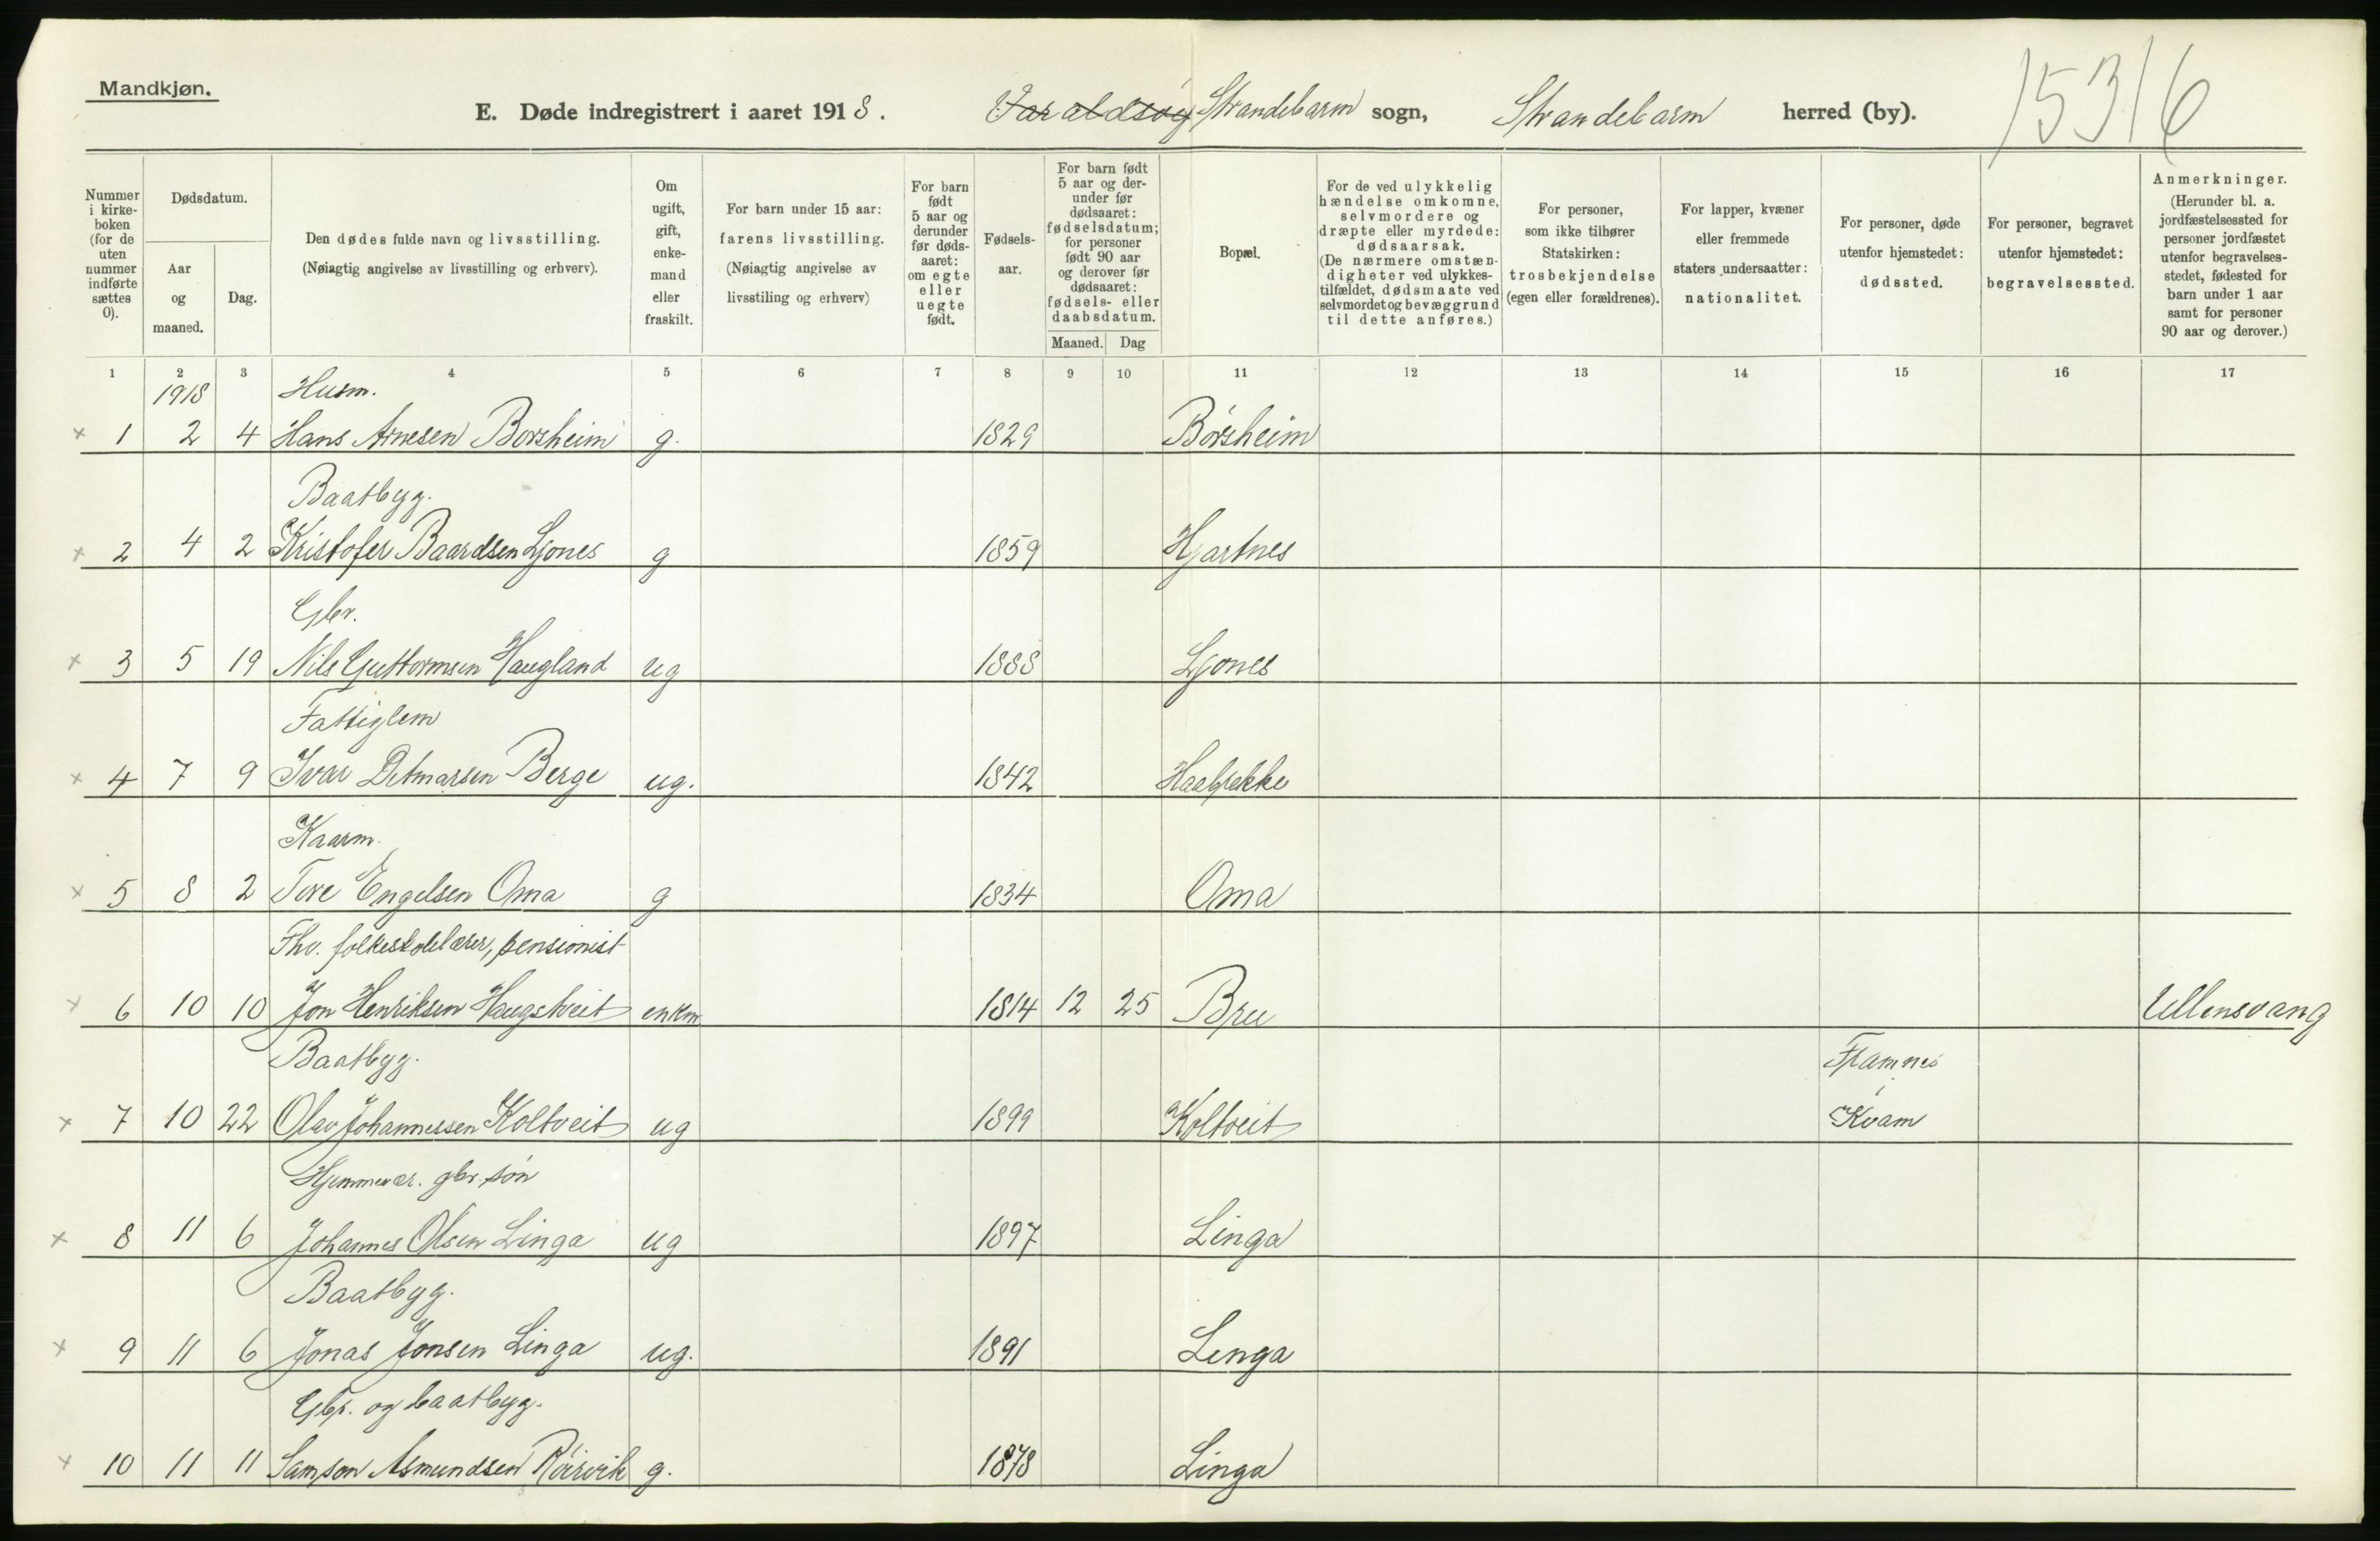 Mandkjøn.
E. Døde indregistrert i aaret 1918. Varaldsøy Strandebarm sogn, Strandebarm herred (by). 15316
Nummer i kirkeboken (for de uten nummer indførte sættes 0).
Dødsdatum.
Aar og maaned.
Dag.
Den dødes fulde navn og livsstilling.
(Nøiagtig angivelse av livsstilling og erhverv).
Om ugift, gift, enkemand eller fraskilt.
For barn under 15 aar: farens livsstilling.
(Nøiagtig angivelse av livsstiling og erhverv)
For barn født 5 aar og derunder før dødsaaret: om egte eller uegte født.
Fødselsaar.
For barn født 5 aar og derunder før dødsaaret: fødselsdatum; for personer født 90 aar og derover før dødsaaret: fødsels- eller daabsdatum.
Maaned. Dag
Bopæl.
For de ved ulykkelig hændelse omkomne, selvmordere og dræpte eller myrdede: dødsaarsak.
(De nærmere omstændigheter ved ulykkestilfældet, dødsmaate ved selvmordet og bevæggrund til dette anføres.)
For personer, som ikke tilhører Statskirken: trosbekjendelse (egen eller forældrenes).
For lapper, kvæner eller fremmede staters undersaatter: nationalitet.
For personer, døde utenfor hjemstedet: dødssted.
For personer, begravet utenfor hjemstedet: begravelsessted.
Anmerkninger.
(Herunder bl. a. jordfæstelsessted for personer jordfæstet utenfor begravelsesstedet, fødested for barn under 1 aar samt for personer 90 aar og derover.)
1 2 3 4 5 6 7 8 9 10 11 12 13 14 15 16 17
1918 Husm.
× 1 2 4 Hans Arnesen Børsheim g. 1829 Børsheim
Baatbyg.
× 2 4 2 Kristofer Baardsen Ljones g 1859 Hjartnes
Gbr.
× 3 5 19 Nils Guttormsen Haugland ug 1888 Ljones
Fattiglem
× 4 7 9 Ivar Detmarsen Berge ug. 1842 Haabrekke
Kaarm.
× 5 8 2 Tore Engelsen Oma g 1834 Oma
Fhv. folkeskolelærer, pensionist
× 6 10 10 Jon Henriksen Haugstveit enkm 1814 12 25 Bru Ullensvang
Baatbyg. Framnes
× 7 10 22 Olav Johannessen Koltveit ug 1899 Koltveit Kvam
Hjemmevær. gbr. søn
× 8 11 6 Johannes Olsen Linga ug 1897 Linga
Baatbyg.
× 9 11 6 Jonas Jonsen Linga ug. 1891 Linga
Gbr. og baatbyg.
× 10 11 11 Samson Asmundsen Røirvik g. 1878 Linga